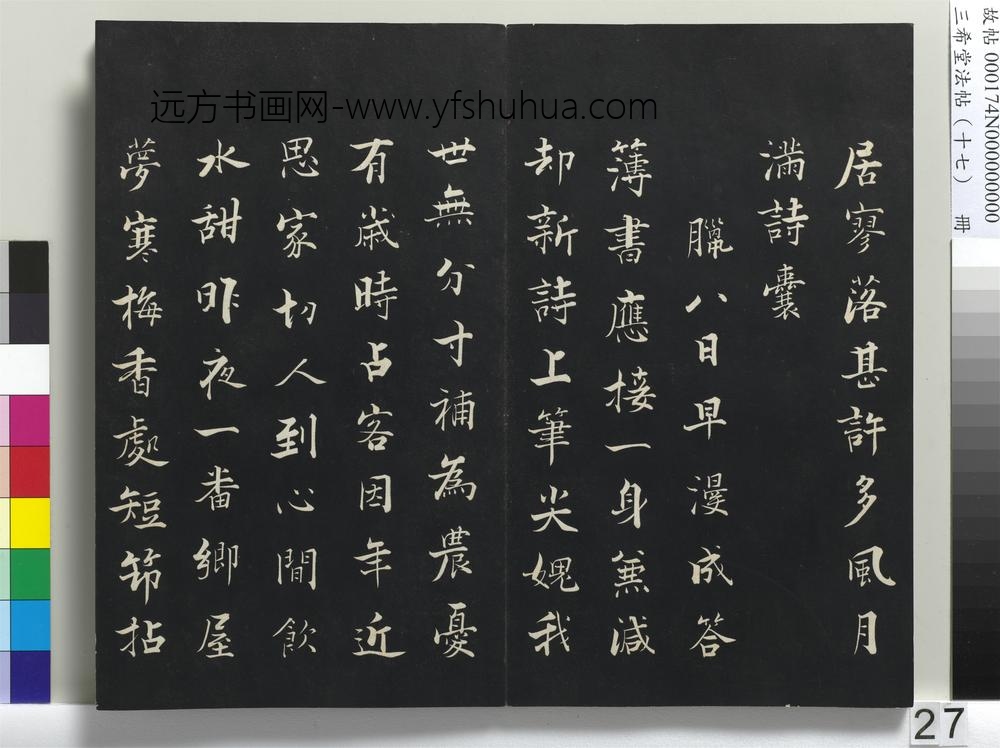 居寥落甚許多風月
滿詩囊
臘八日早漫成答
簿書應接一身兼減
却新詩上筆尖媿我
世無分寸補為農憂
有歲時占客因年近
思家切人到心閒飲
水甜昨夜一番鄉屋
夢寒梅香處短節拈
远方书画网-www.yfshuhua.com
故帖000174N000000000
三希堂法帖(十七) 冊
27